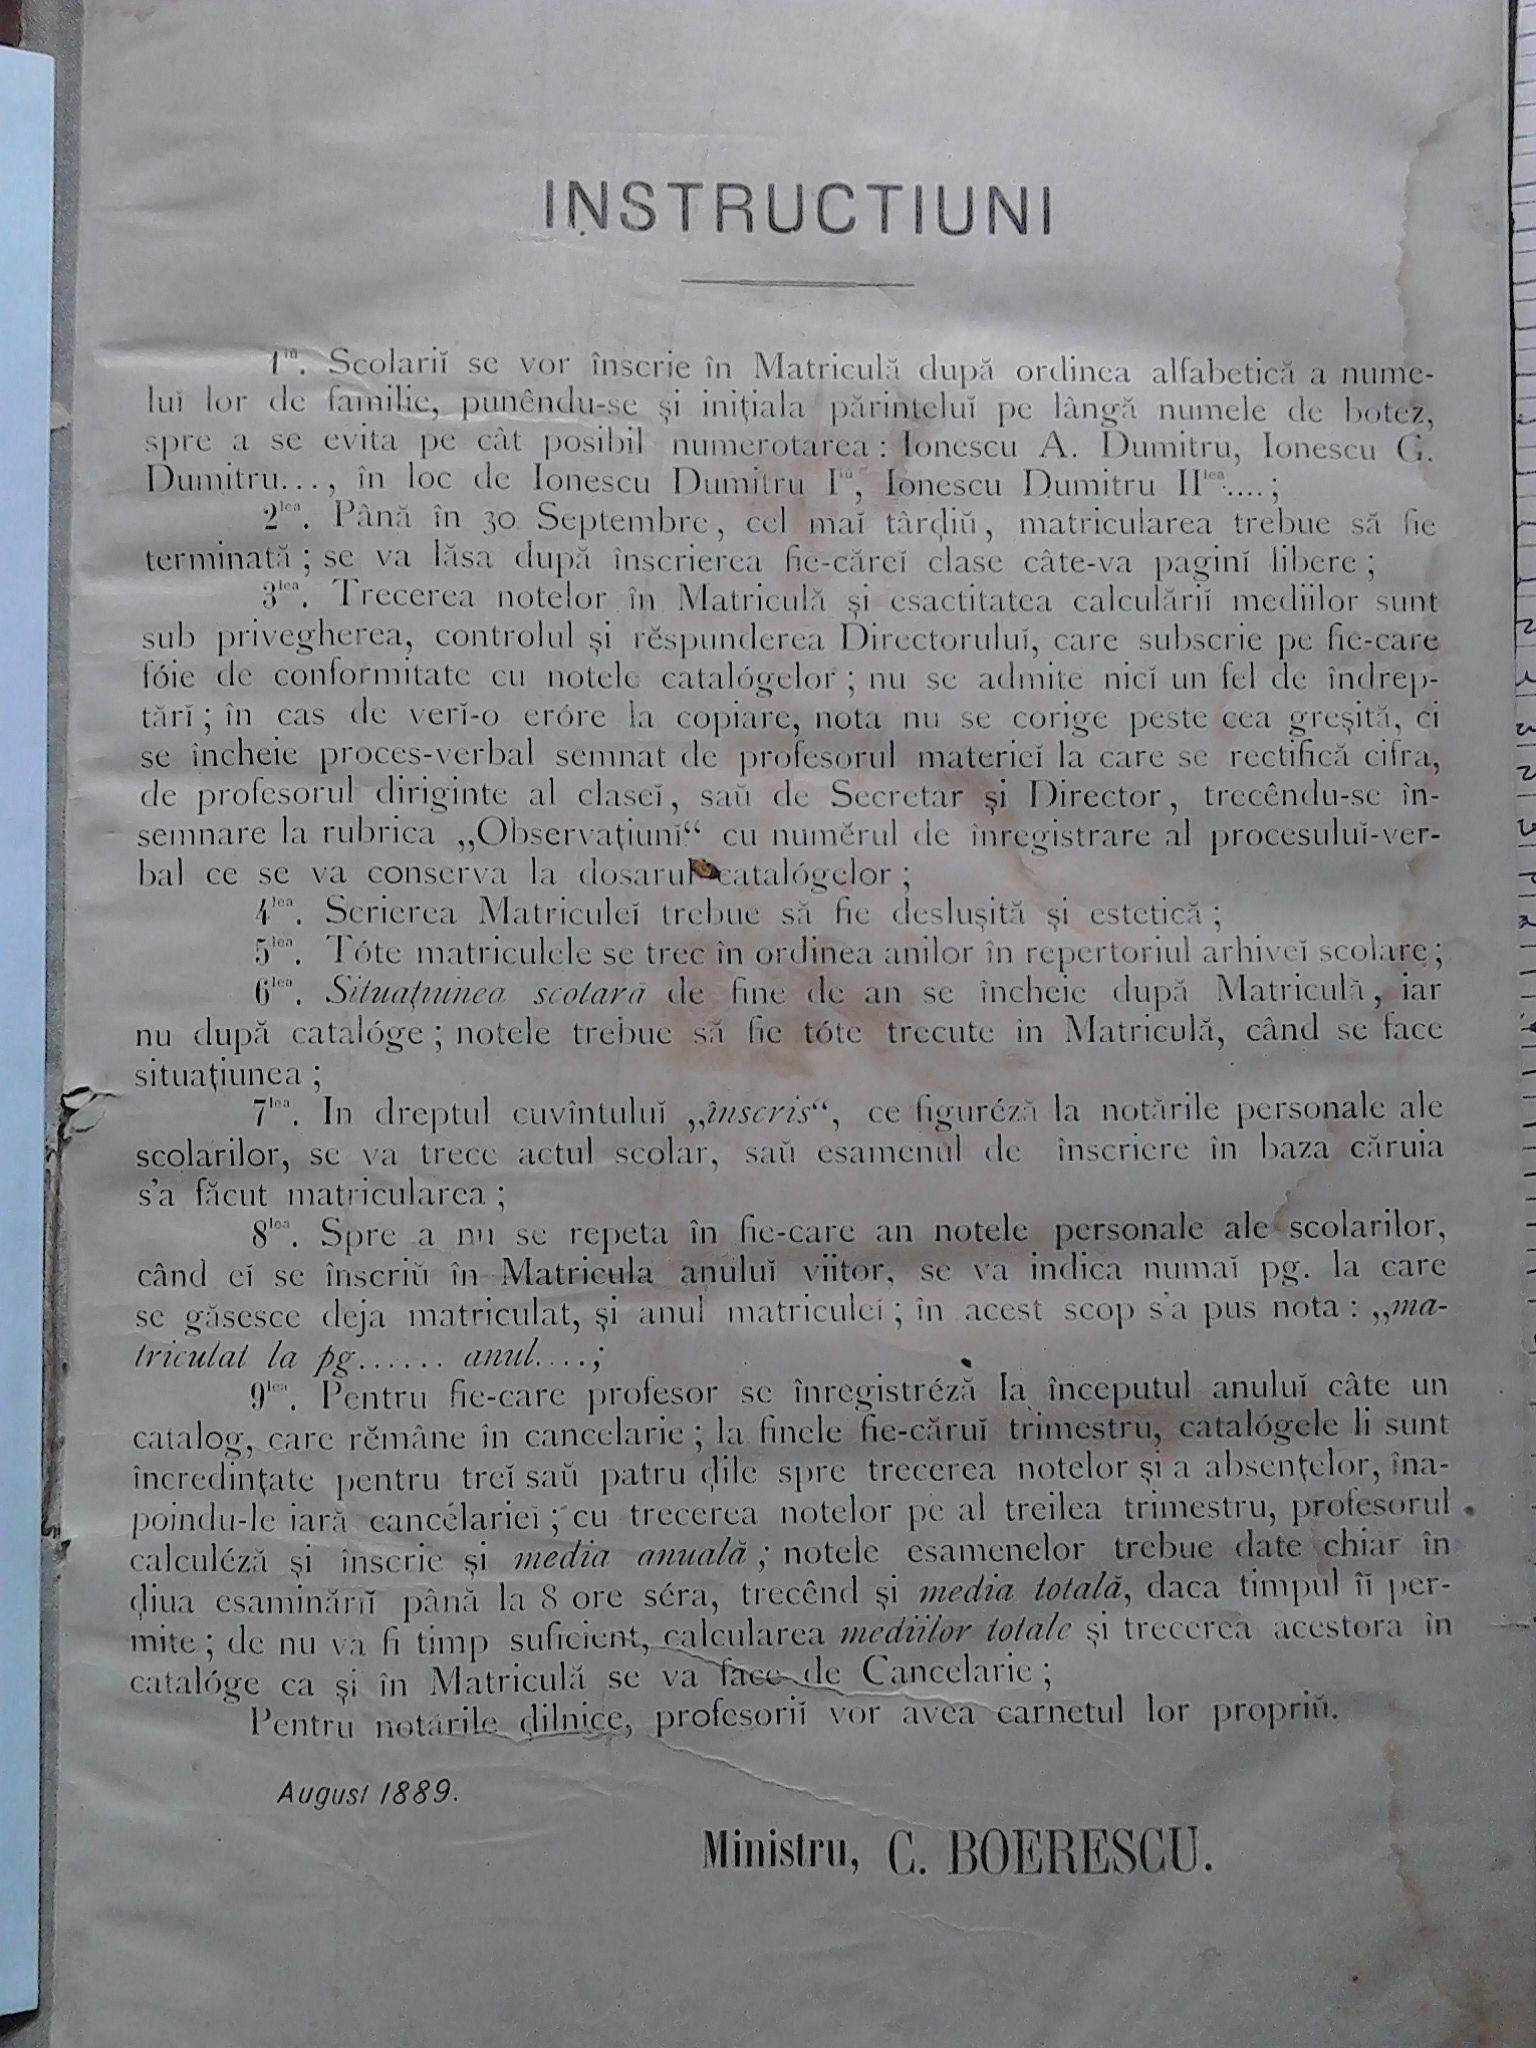 INSTRUCTIUNI
1iŭ. Scolariĭ se vor înscrie în Matriculă după ordinea alfabetică a nume-
luĭ lor de familie, punêndu-se și inițiala părinteluĭ pe lângă numele de botez,
spre a se evita pe cât posibil numerotarea : Ionescu A. Dumitru, Ionescu G.
Dumitru..., în loc de Ionescu Dumitru Iiŭ, Ionescu Dumitru IIlea....;
2lea. Până în 30 Septembre, cel maĭ târḑiŭ, matricularea trebue să fie
terminată ; se va lăsa după înscrierea fie-căreĭ clase câte-va paginĭ libere ;
3lea. Trecerea notelor în Matriculă și esactitatea calculăriĭ mediilor sunt
sub privegherea, controlul și rĕspunderea Directoruluĭ, care subscrie pe fie-care
fóie de conformitate cu notele catalógelor ; nu se admite nicĭ un fel de îndrep-
tărĭ ; în cas de verĭ-o eróre la copiare, nota nu se corige peste cea greșită, ci
se încheie proces-verbal semnat de profesorul materieĭ la care se rectifică cifra,
de profesorul diriginte al claseĭ, saŭ de Secretar și Director, trecêndu-se în-
semnare la rubrica „Observațiunĭ“ cu numĕrul de înregistrare al procesuluĭ-ver-
bal ce se va conserva la dosarul catalógelor ;
4lea. Scrierea Matriculeĭ trebue să fie deslușită și estetică ;
5lea. Tóte matriculele se trec în ordinea anilor în repertoriul arhiveĭ scolare ;
6lea. Situațiunea scolară de fine de an se încheie după Matriculă, iar
nu după catalóge ; notele trebue să fie tóte trecute în Matriculă, când se face
situațiunea ;
7lea. In dreptul cuvîntuluĭ „înscris“, ce figuréză la notările personale ale
scolarilor, se va trece actul scolar, saŭ esamenul de înscriere în baza căruia
s'a făcut matricularea ;
8lea. Spre a nu se repeta în fie-care an notele personale ale scolarilor,
când eĭ se înscriŭ în Matricula anuluĭ viitor, se va indica numaĭ pg. la care
se găsesce deja matriculat, și anul matriculeĭ ; în acest scop s'a pus nota : „ma-
triculat la pg...... anul....;
9lea. Pentru fie-care profesor se înregistréză la începutul anuluĭ câte un
catalog, care rĕmâne în cancelarie ; la finele fie-căruĭ trimestru, catalógele li sunt
încredințate pentru treĭ saŭ patru ḑile spre trecerea notelor și a absențelor, îna-
poindu-le iară cancélarieĭ ; cu trecerea notelor pe al treilea trimestru, profesorul
calculéză și înscrie și media anuală ; notele esamenelor trebue date chiar în
ḑiua esaminăriĭ până la 8 ore séra, trecênd și media totală, daca timpul îĭ per-
mite ; de nu va fi timp suficient, calcularea mediilor totale și trecerea acestora în
catalóge ca și în Matriculă se va face de Cancelarie ;
Pentru notările ḑilnice, profesoriĭ vor avea carnetul lor propriŭ.
August 1889.
Ministru, C. BOERESCU.